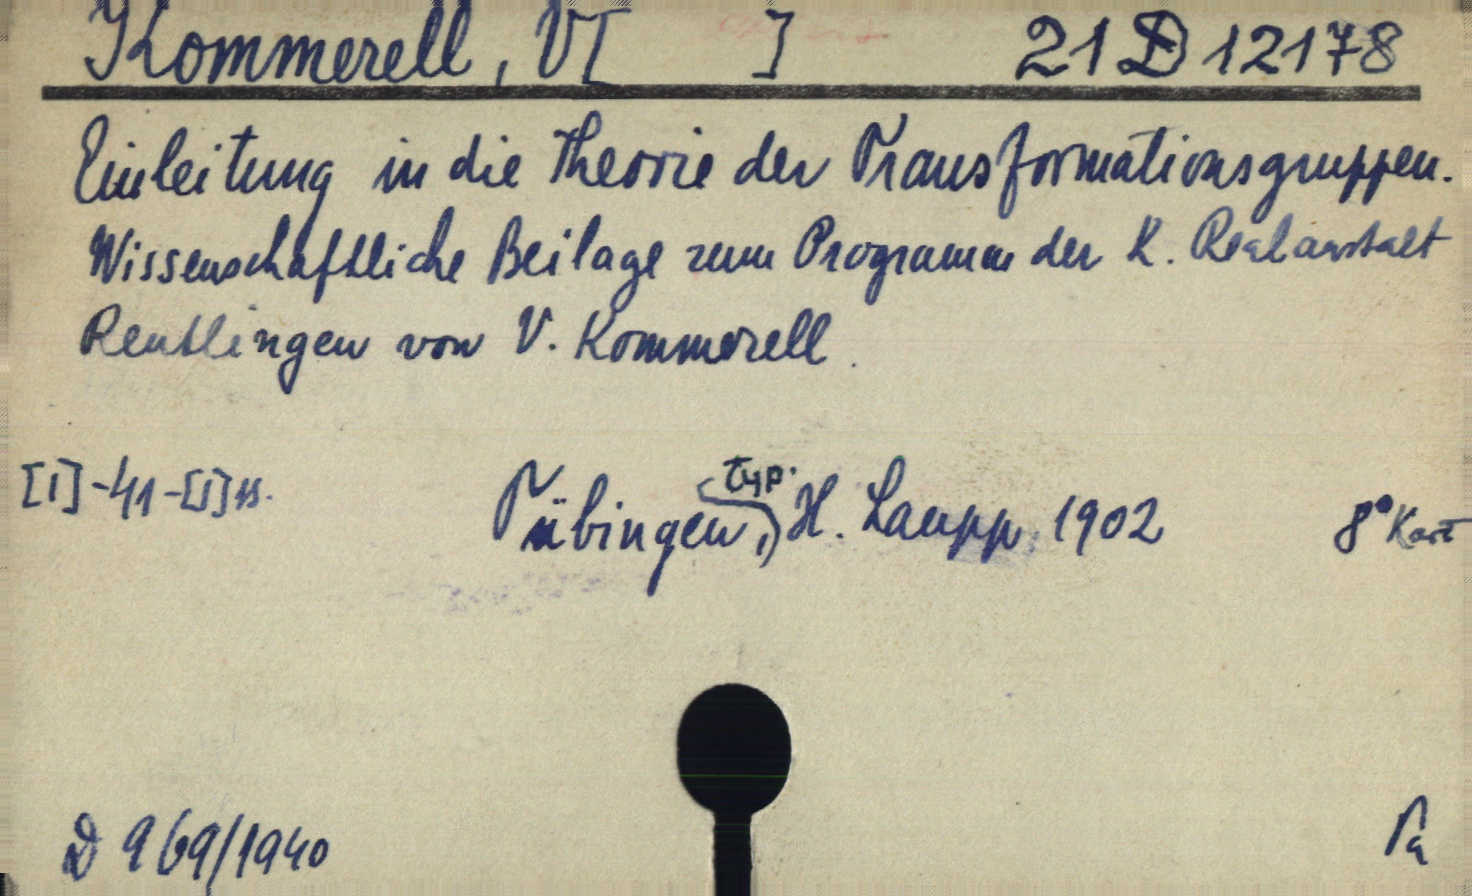 Kommerell, V[ ] 21 D 12178
Einleitung in die Theorie der Transformationsgruppen.
Wissenschaftliche Beilage zum Programm der K. Realanstalt
Reutlingen von V. Kommerell.
[1]-41-[1] s.
Tübingen, (typ. H. Laupp 1902 8° Kart
D 969/1940